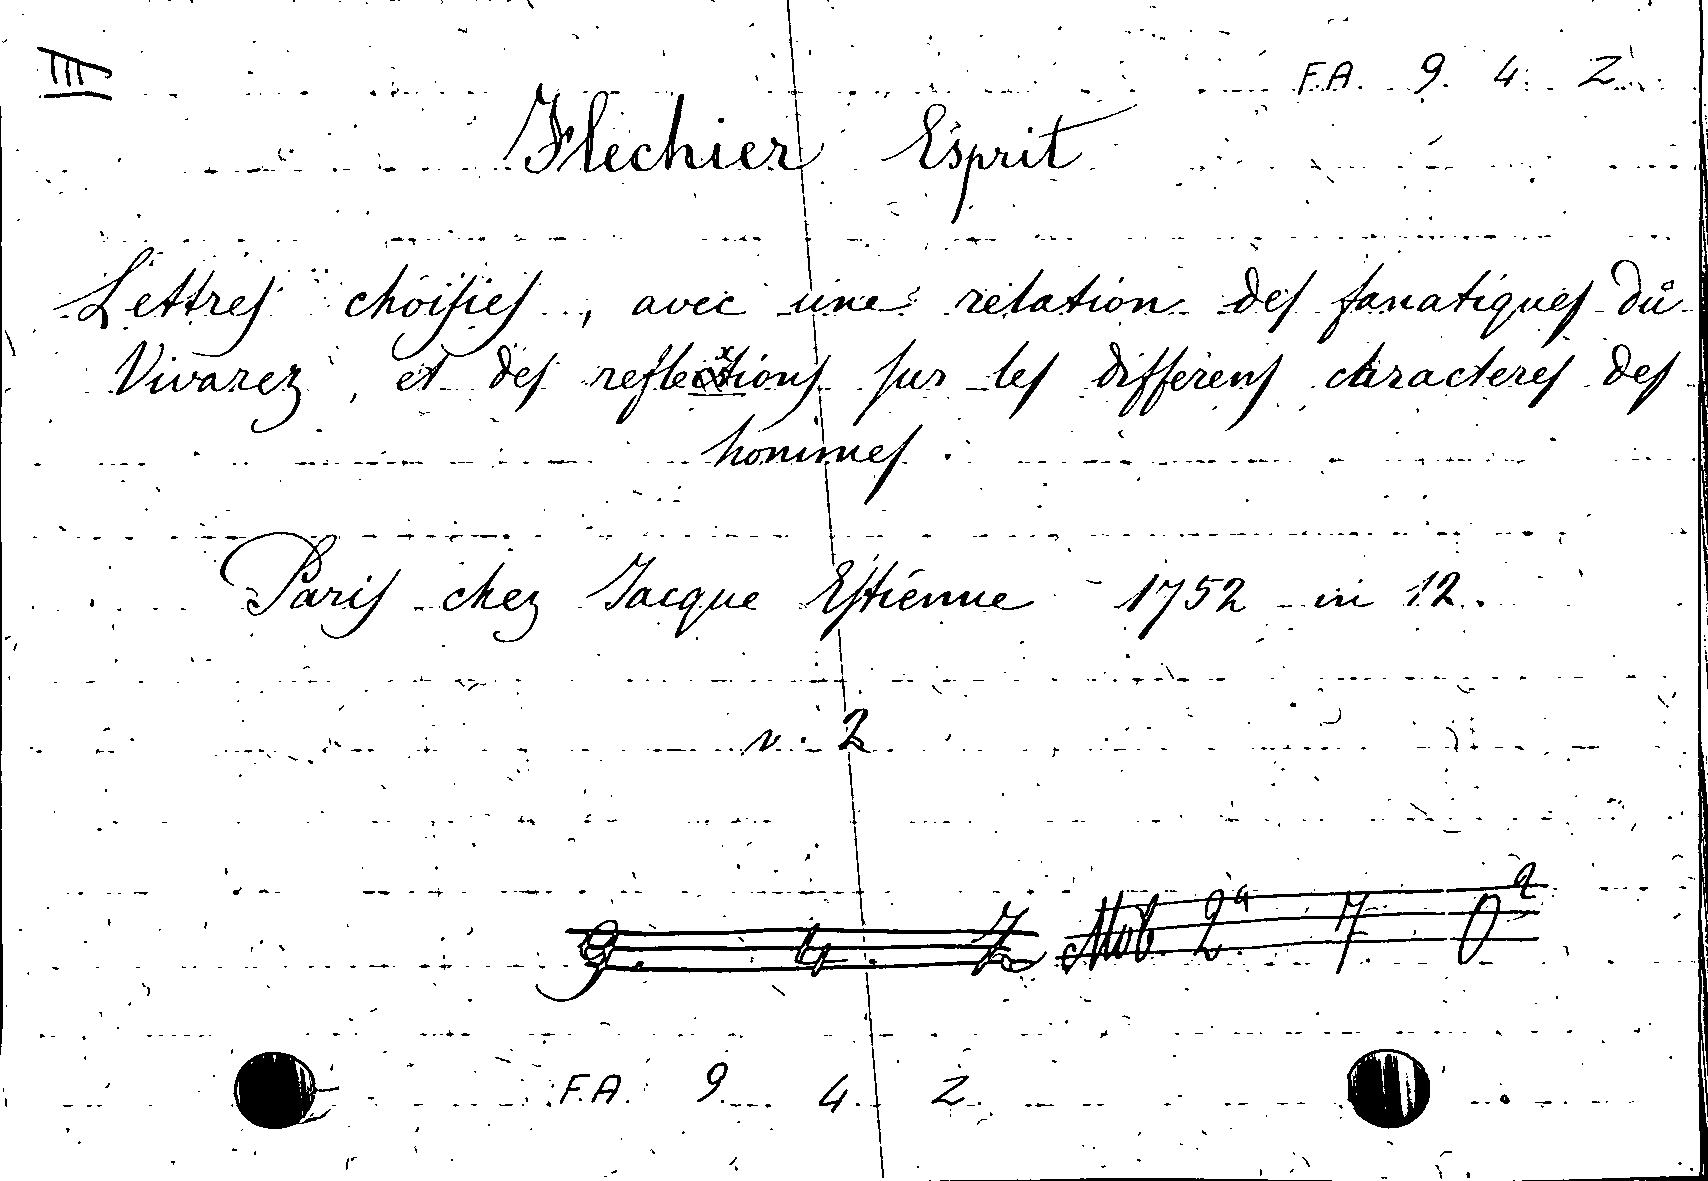 III F.A. 9. 4. Z.
Flechier Esprit
Lettres choisies, avec une relation des fanatiques du
Vivarez, et des reflexions sur les differens caracteres des
hommes.
Paris chez Jacque Estienne 1752 in 12.
v. 2
9. 4. Z Mob. 2a 7 0 2
F.A. 9. 4. Z